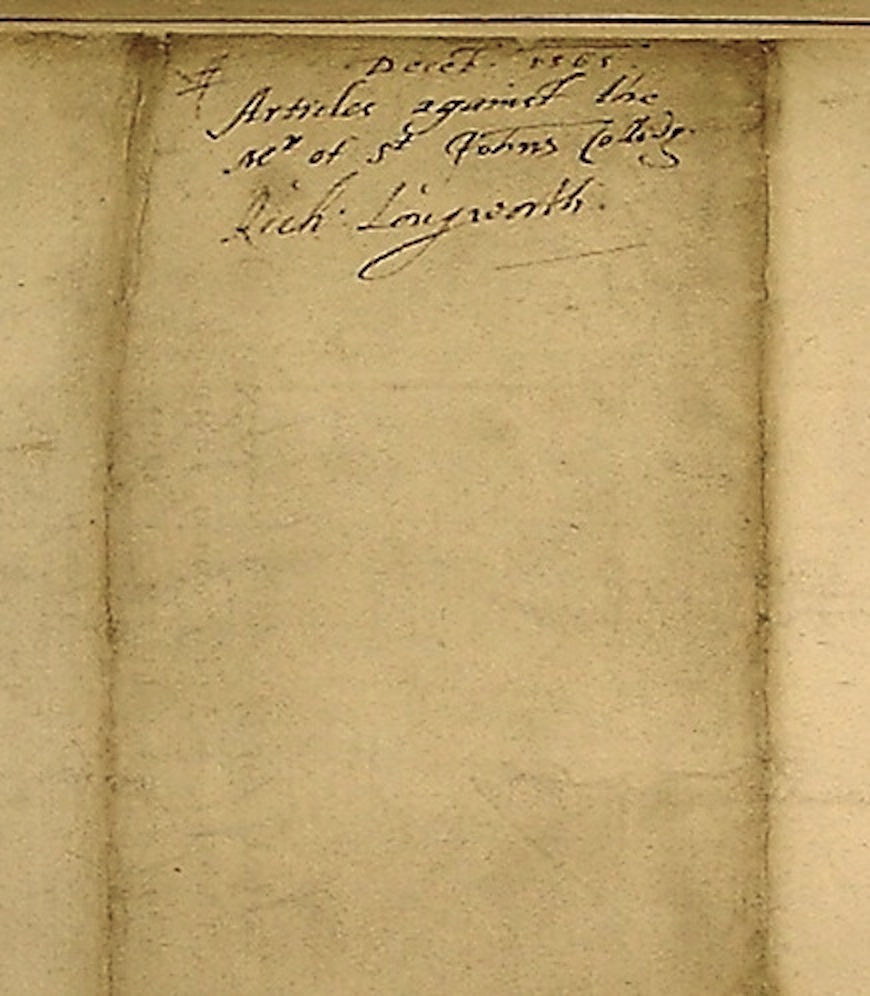 Decet. 1565.
Articles against the
Mr of St Johns Colledg.
Rich: Longworth.